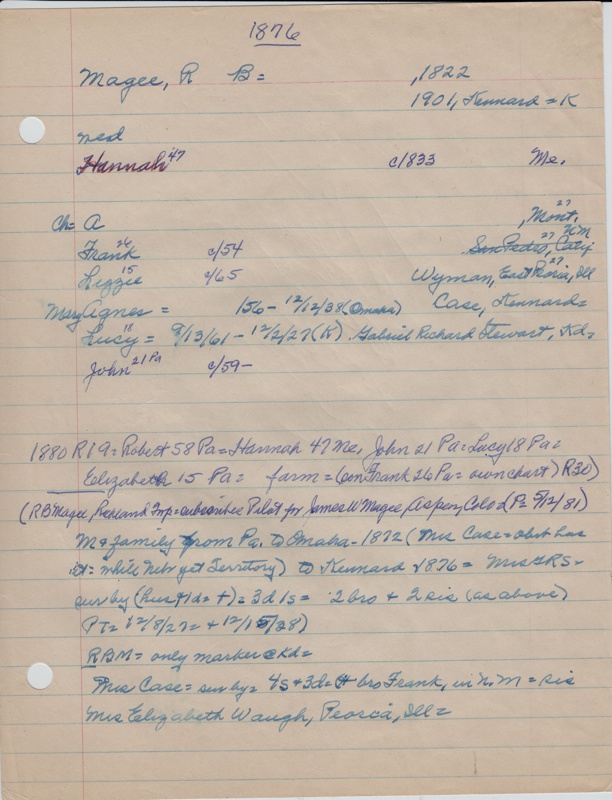 1876
Magee, R B = , 1822
1901, Kennard = K
med
Hannah 47 c/1833 Me.
Ch = A , Mont. 27
Frank 26 c/54 San Pedro, 27 Calif N M
Lizzie 15 c/65 Wyman, East Peoria, Ill 27
Mary Agnes = /56 - 12/12/38 (Omaha) Case, Kennard =
Lucy 18 = 9/13/61 - 12/2/27 (K) Gabriel Richard Stewart, Kd =
John 21 Pa c/59 -
1880 R19 = Robert 58 Pa = Hannah 47 Me, John 21 Pa = Lucy 18 Pa =
Elizabeth 15 Pa = farm = (son Frank 26 Pa = own chart) R30)
(R B Magee, Richland Twp = subscribes Pilot for James W Magee, Aspen, Colo d (P = 5/12/81)
M & family from Pa. to Omaha - 1872 (Mrs Case = obit has
it = while Nebr yet Territory) to Kennard 1876 = Mrs GRS =
sur by (hus + 1d = +) = 3d 1s = 2 bro + 2 sis (as above)
PT = 12/8/27 = + 12/15/38)
RBM = only marker @ Kd =
Mrs Case = sur by = 4s + 3d = + bro Frank, in N. M = sis
Mrs Elizabeth Waugh, Peoria, Ill =